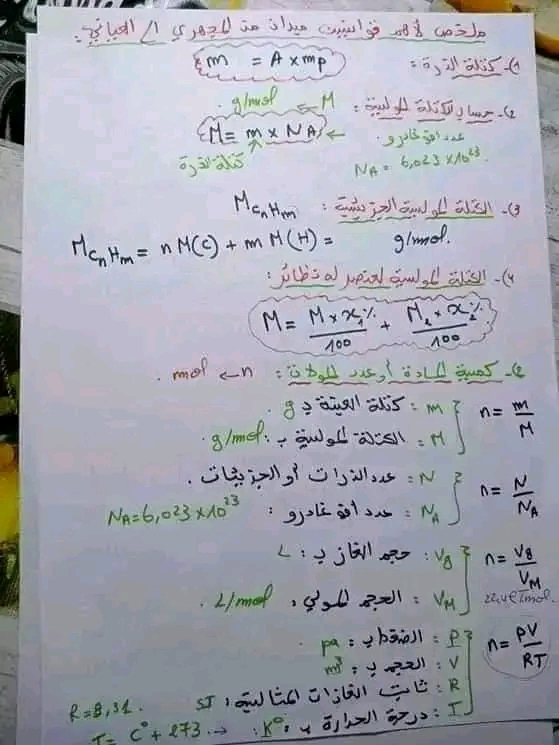 ملخص لأهم قوانين ميدان من المجهري إلى العياني:
1)- كتلة الذرة: m = A x mp
2)- حساب الكتلة المولية: M ← g/mol
M = m x NA ← عدد أفوغادرو.
كتلة الذرة NA = 6,023 x 10²³.
3)- الكتلة المولية الجزيئية: M CnHm
M CnHm = n M(C) + m M(H) = g/mol.
4)- الكتلة المولية لعنصر له نظائر:
M = M x x₁%/100 + M₂ x x₂%/100
كمية المادة أو عدد المولات: n → mol.
n = m/M
m : كتلة العينة بـ g
M : الكتلة المولية بـ: g/mol
n = N/NA
N : عدد الذرات أو الجزيئات.
NA : عدد أفوغادرو: NA = 6,023 x 10²³
n = Vg/VM
Vg : حجم الغاز بـ: L
VM : الحجم المولي: L/mol.
n = PV/RT
P : الضغط بـ: pa
V : الحجم بـ: m³
R : ثابت الغازات المثالية: SI R = 8,31.
T : درجة الحرارة بـ: K° → T = C° + 273